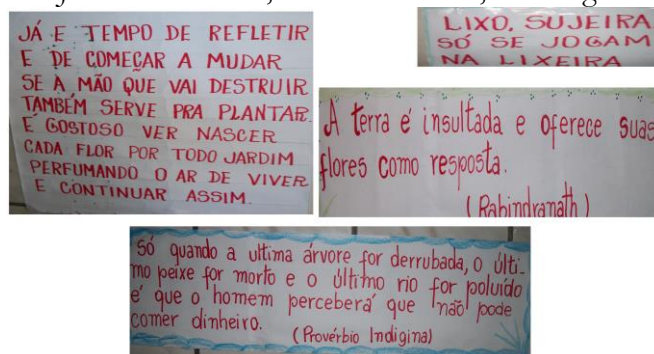 JÁ E TEMPO DE REFLETIR
E DE COMEÇAR A MUDAR
SE A MÃO QUE VAI DESTRUIR
TAMBÉM SERVE PRA PLANTAR.
E GOSTOSO VER NASCER
CADA FLOR POR TODO JARDIM
PERFUMANDO O AR DE VIVER
E CONTINUAR ASSIM.
LIXO, SUJEIRA
SÓ SE JOGAM
NA LIXEIRA
A terra é insultada e oferece suas
flores como resposta.
(Rabindranath)
Só quando a ultima árvore for derrubada, o últi-
mo peixe for morto e o último rio for poluído
é que o homem perceberá que não pode
comer dinheiro.
(Provérbio Indigina)